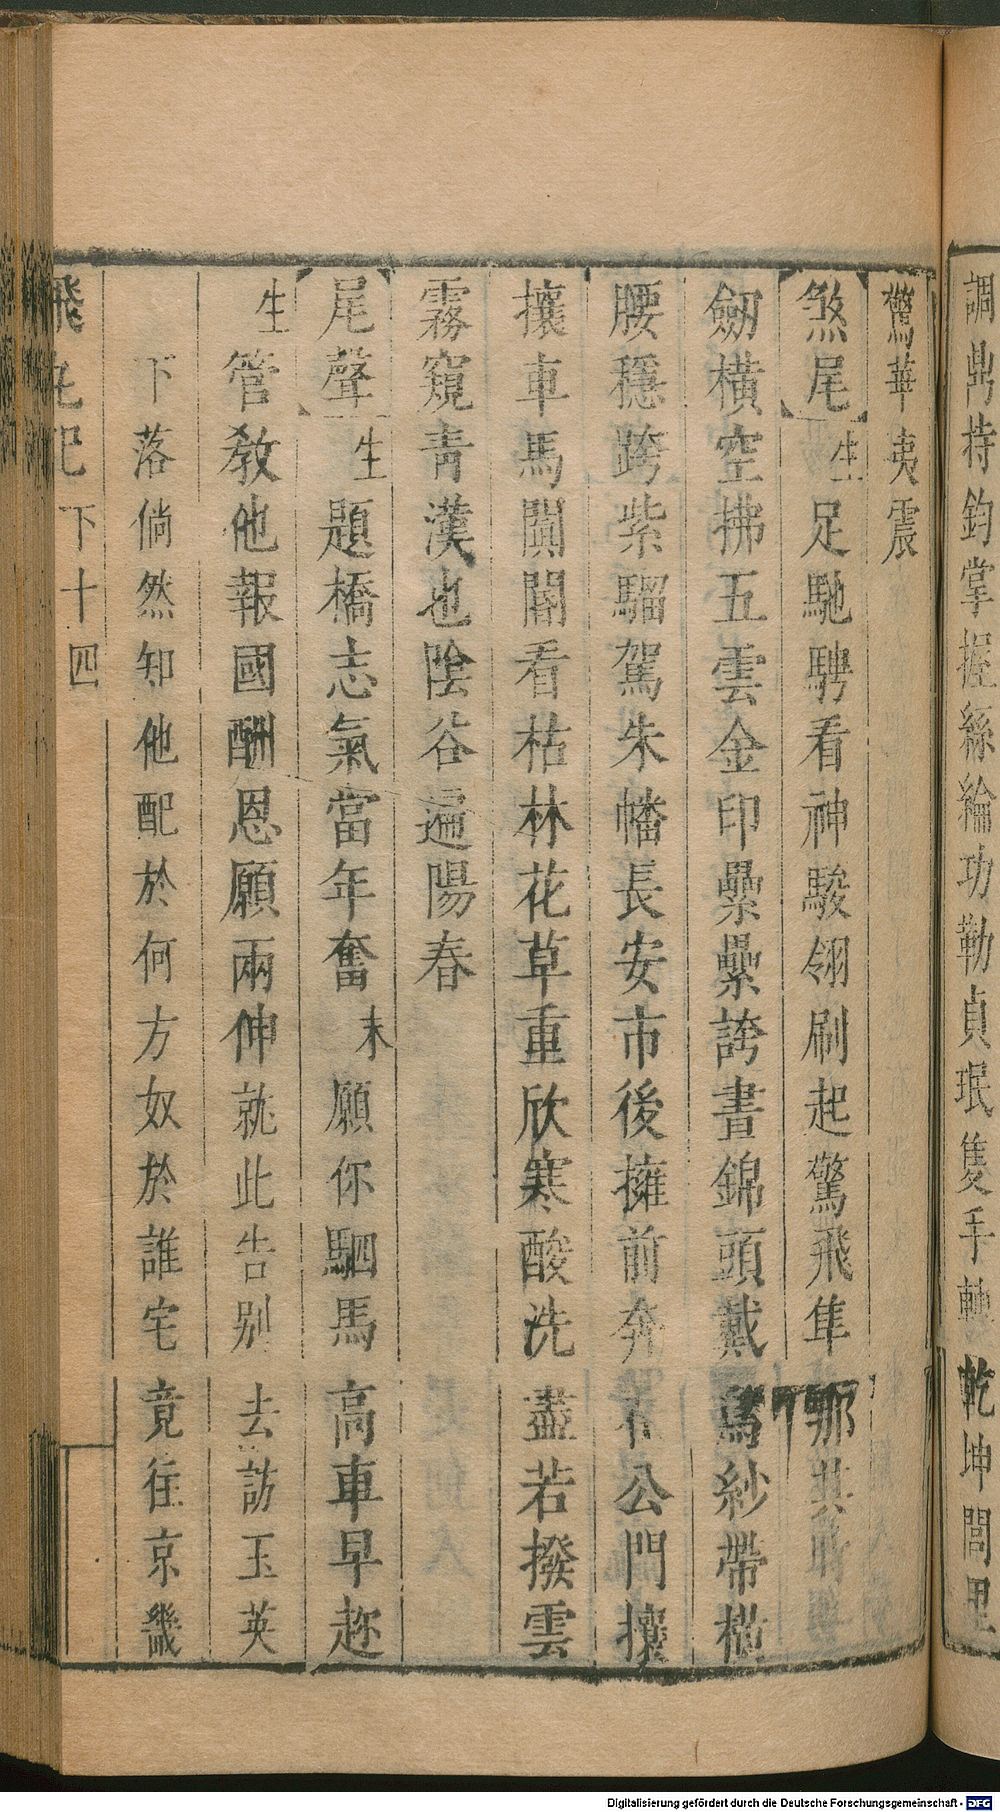 調鼎持鈞掌握絲綸功勒貞珉隻手轉乾坤閭里
驚華夷震
煞尾 生 足馳騁看神駿翎刷起驚飛隼那其時
劒橫空拂五雲金印纍纍誇晝錦頭戴烏紗帶橫
腰穩跨紫騮駕朱幡長安市後擁前奔公門攘
攘車馬闐闐看枯林花草重欣寒酸洗盡若撥雲
霧窺青漢也陰谷遍陽春
尾聲 生 題橋志氣當年奮 末 願你駟馬高車早趂
生 管敎他報國酬恩願兩伸就此告别去訪玉英
下落倘然知他配於何方奴於誰宅竟往京畿
飛丸記 下 十四
Digitalisierung gefördert durch die Deutsche Forschungsgemeinschaft - DFG